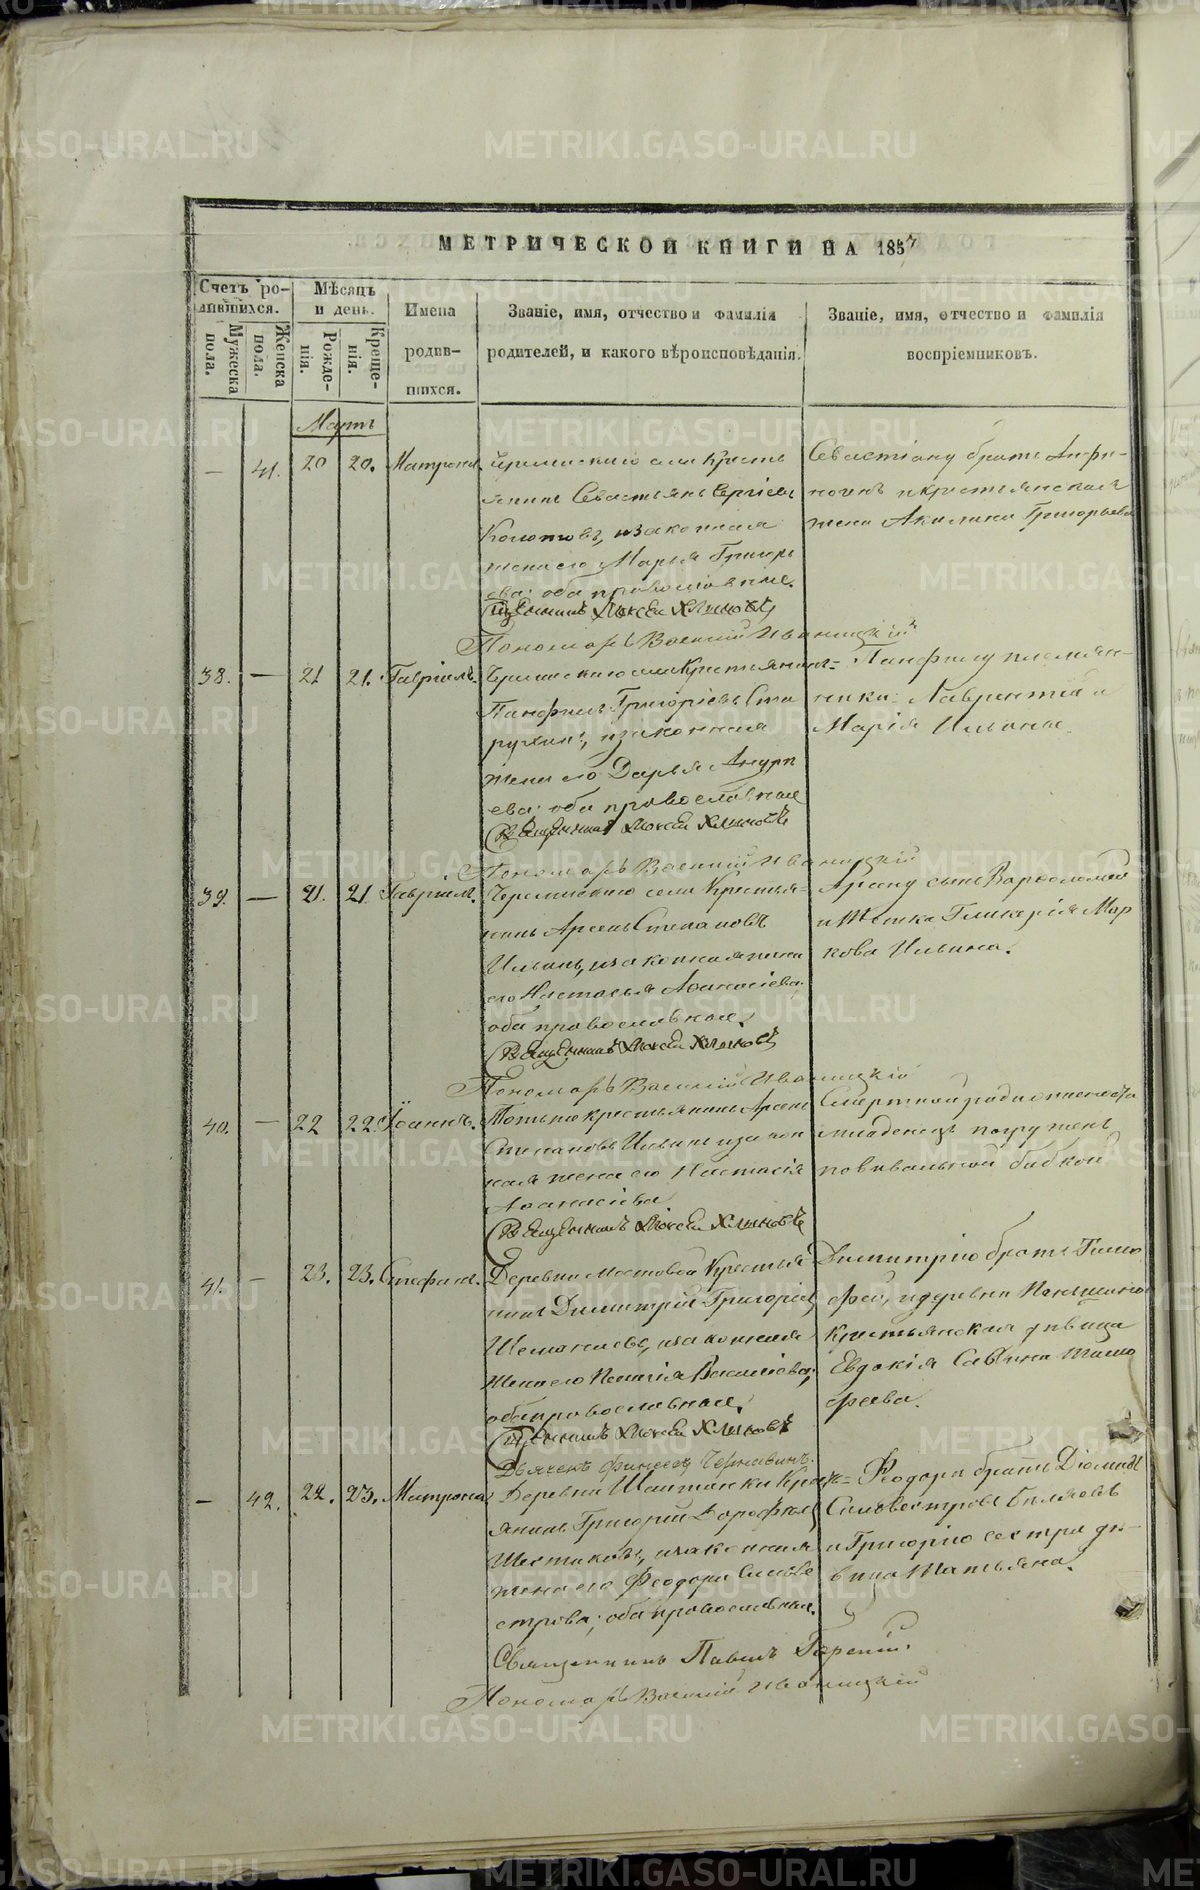 МЕТРИЧЕСКОЙ КНИГИ НА 1857
Счетъ ро-
дившихся.
Мужеска
пола.
Женска
пола.
Мѣсяцъ
и день.
Рожде-
нія.
Креще-
нія.
Имена
родив-
шихся.
Званіе, имя, отчество и фамилія
родителей, и какого вѣроисповѣданія.
Званіе, имя, отчество и фамилія
воспріемниковъ.
Мартъ
— 41. 20 20. Матрона.
села Кресть
янинъ Севастьянъ Сергіевъ
изаконная
жена его Марья Григорь
ева: оба православные.
Священникъ Алексѣй Хлыновъ
Пономарь Василий Иваницкій
Севастіану братъ
и крестьянская
жена Акилина Григорьева
38. — 21 21. Гавріилъ.
села Крестьянинъ
Панфилъ Григоріевъ Ста
рухинъ, изаконная
жена его Дарья
ева: оба православные
Священникъ Алексѣй Хлыновъ
Пономарь Василий Иваницкій
Панфилу племян-
ники: Лаврентій и
Марія Ильины.
39. — 21. 21 Гавриилъ.
села Крестья-
нинъ Арсень Степановъ
Ильинъ, изаконная жена
его Настасья Афанасіева
оба православные.
Священникъ Алексѣй Хлыновъ
Пономарь Василий Иваницкій
Арсену сынъ Варфоломей
и тетка Гликерія Мар
кова Ильина.
40. — 22 22. Іоаннъ.
крестьянинъ Арсень
Степановъ Ильинъ изакон
ная жена его Настасія
Афанасіева
Священникъ Алексѣй Хлыновъ
младенецъ погруженъ
повивальной бабкой
41. — 23. 23. Стефанъ.
Деревни Мостовой Крестья
нинъ Димитрій Григоріевъ
изаконная
жена его Васильева;
оба православные.
Священникъ Алексѣй Хлыновъ
Дьячекъ Финеесъ Чернавинъ.
Димитрію братъ Тимо
фей, и деревни
крестьянская дѣвица
Евдокія Савина Тимо
феева.
— 42. 22. 23. Матрона.
Деревни Шайтанки Крест-
янинъ Григорій Дорофеевъ
Шестаковъ, изаконная
жена его Феодора Сильве
строва; оба православные.
Священникъ Павелъ
Пономарь Василий Иваницкій
Феодоры братъ Діомидъ
Сильвестровъ Биляевъ
и Григорію сестра дѣ-
вица Татьяна.
METRIKI.GASO-URAL.RU